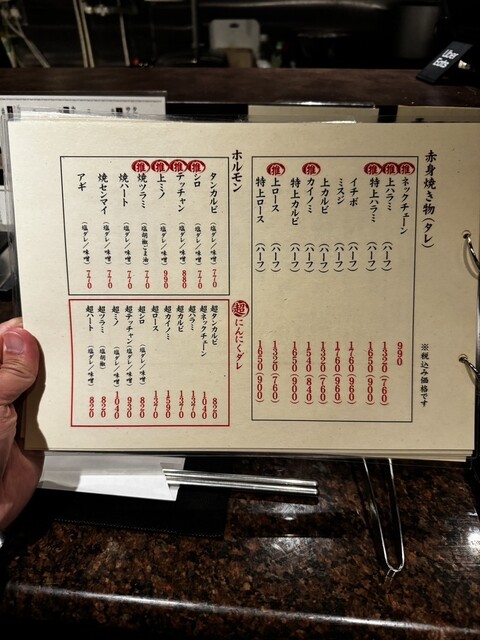 Uber Eats
赤身焼き物(タレ) ※税込み価格です
推 ネックチェーン 990
推 上ハラミ (ハーフ) 1320(760)
推 特上ハラミ (ハーフ) 1650(900)
イチボ (ハーフ) 1760(960)
ミスジ (ハーフ) 1760(960)
上カルビ (ハーフ) 1320(760)
推 カイノミ (ハーフ) 1540(840)
特上カルビ (ハーフ) 1650(900)
推 上ロース (ハーフ) 1320(760)
特上ロース (ハーフ) 1650(900)
ホルモン
タンカルビ (塩ダレ/味噌) 770
推 シロ (塩ダレ/味噌) 770
推 テッチャン (塩ダレ/味噌) 880
推 上ミノ (塩ダレ/味噌) 990
推 焼ツラミ (塩胡椒ごま油) 770
焼ハート (塩ダレ/味噌) 770
焼センマイ (塩ダレ/味噌) 770
アギ (塩ダレ/味噌) 770
超にんにくダレ
超タンカルビ 820
超ネックチェーン 1040
超ハラミ 1370
超カルビ 1370
超カイノミ 1590
超ロース 1370
超シロ (塩ダレ/味噌) 820
超テッチャン (塩ダレ/味噌) 930
超ミノ (塩ダレ/味噌) 1040
超ツラミ (塩胡椒) 820
超ハート (塩ダレ/味噌) 820